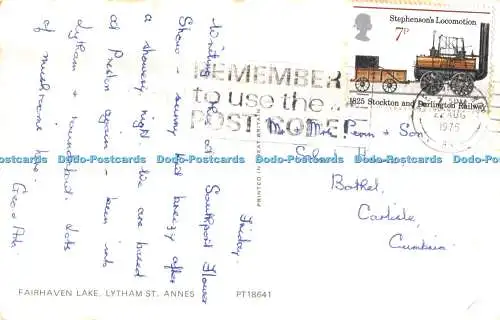 Friday.
Writing this at Southport Flower
Show - sunny but breezy after
a showery night. We are based
at Preston again - been into
Lytham & surrounded. Lots
of mushrooms here.
Geo & Ada.
Mr. Mrs Penn + Son
Bothel,
Carlisle,
Cumbria.
Stephenson's Locomotion
7P
1825 Stockton and Darlington Railway
REMEMBER
to use the
POST CODE!
22 AUG
1975
PRINTED IN GREAT BRITAIN
FAIRHAVEN LAKE, LYTHAM-ST. ANNES PT18641
Dodo-Postcards Dodo-Postcards Dodo-Postcards Dodo-Postcards Dodo-Postcards Dodo-Postcards